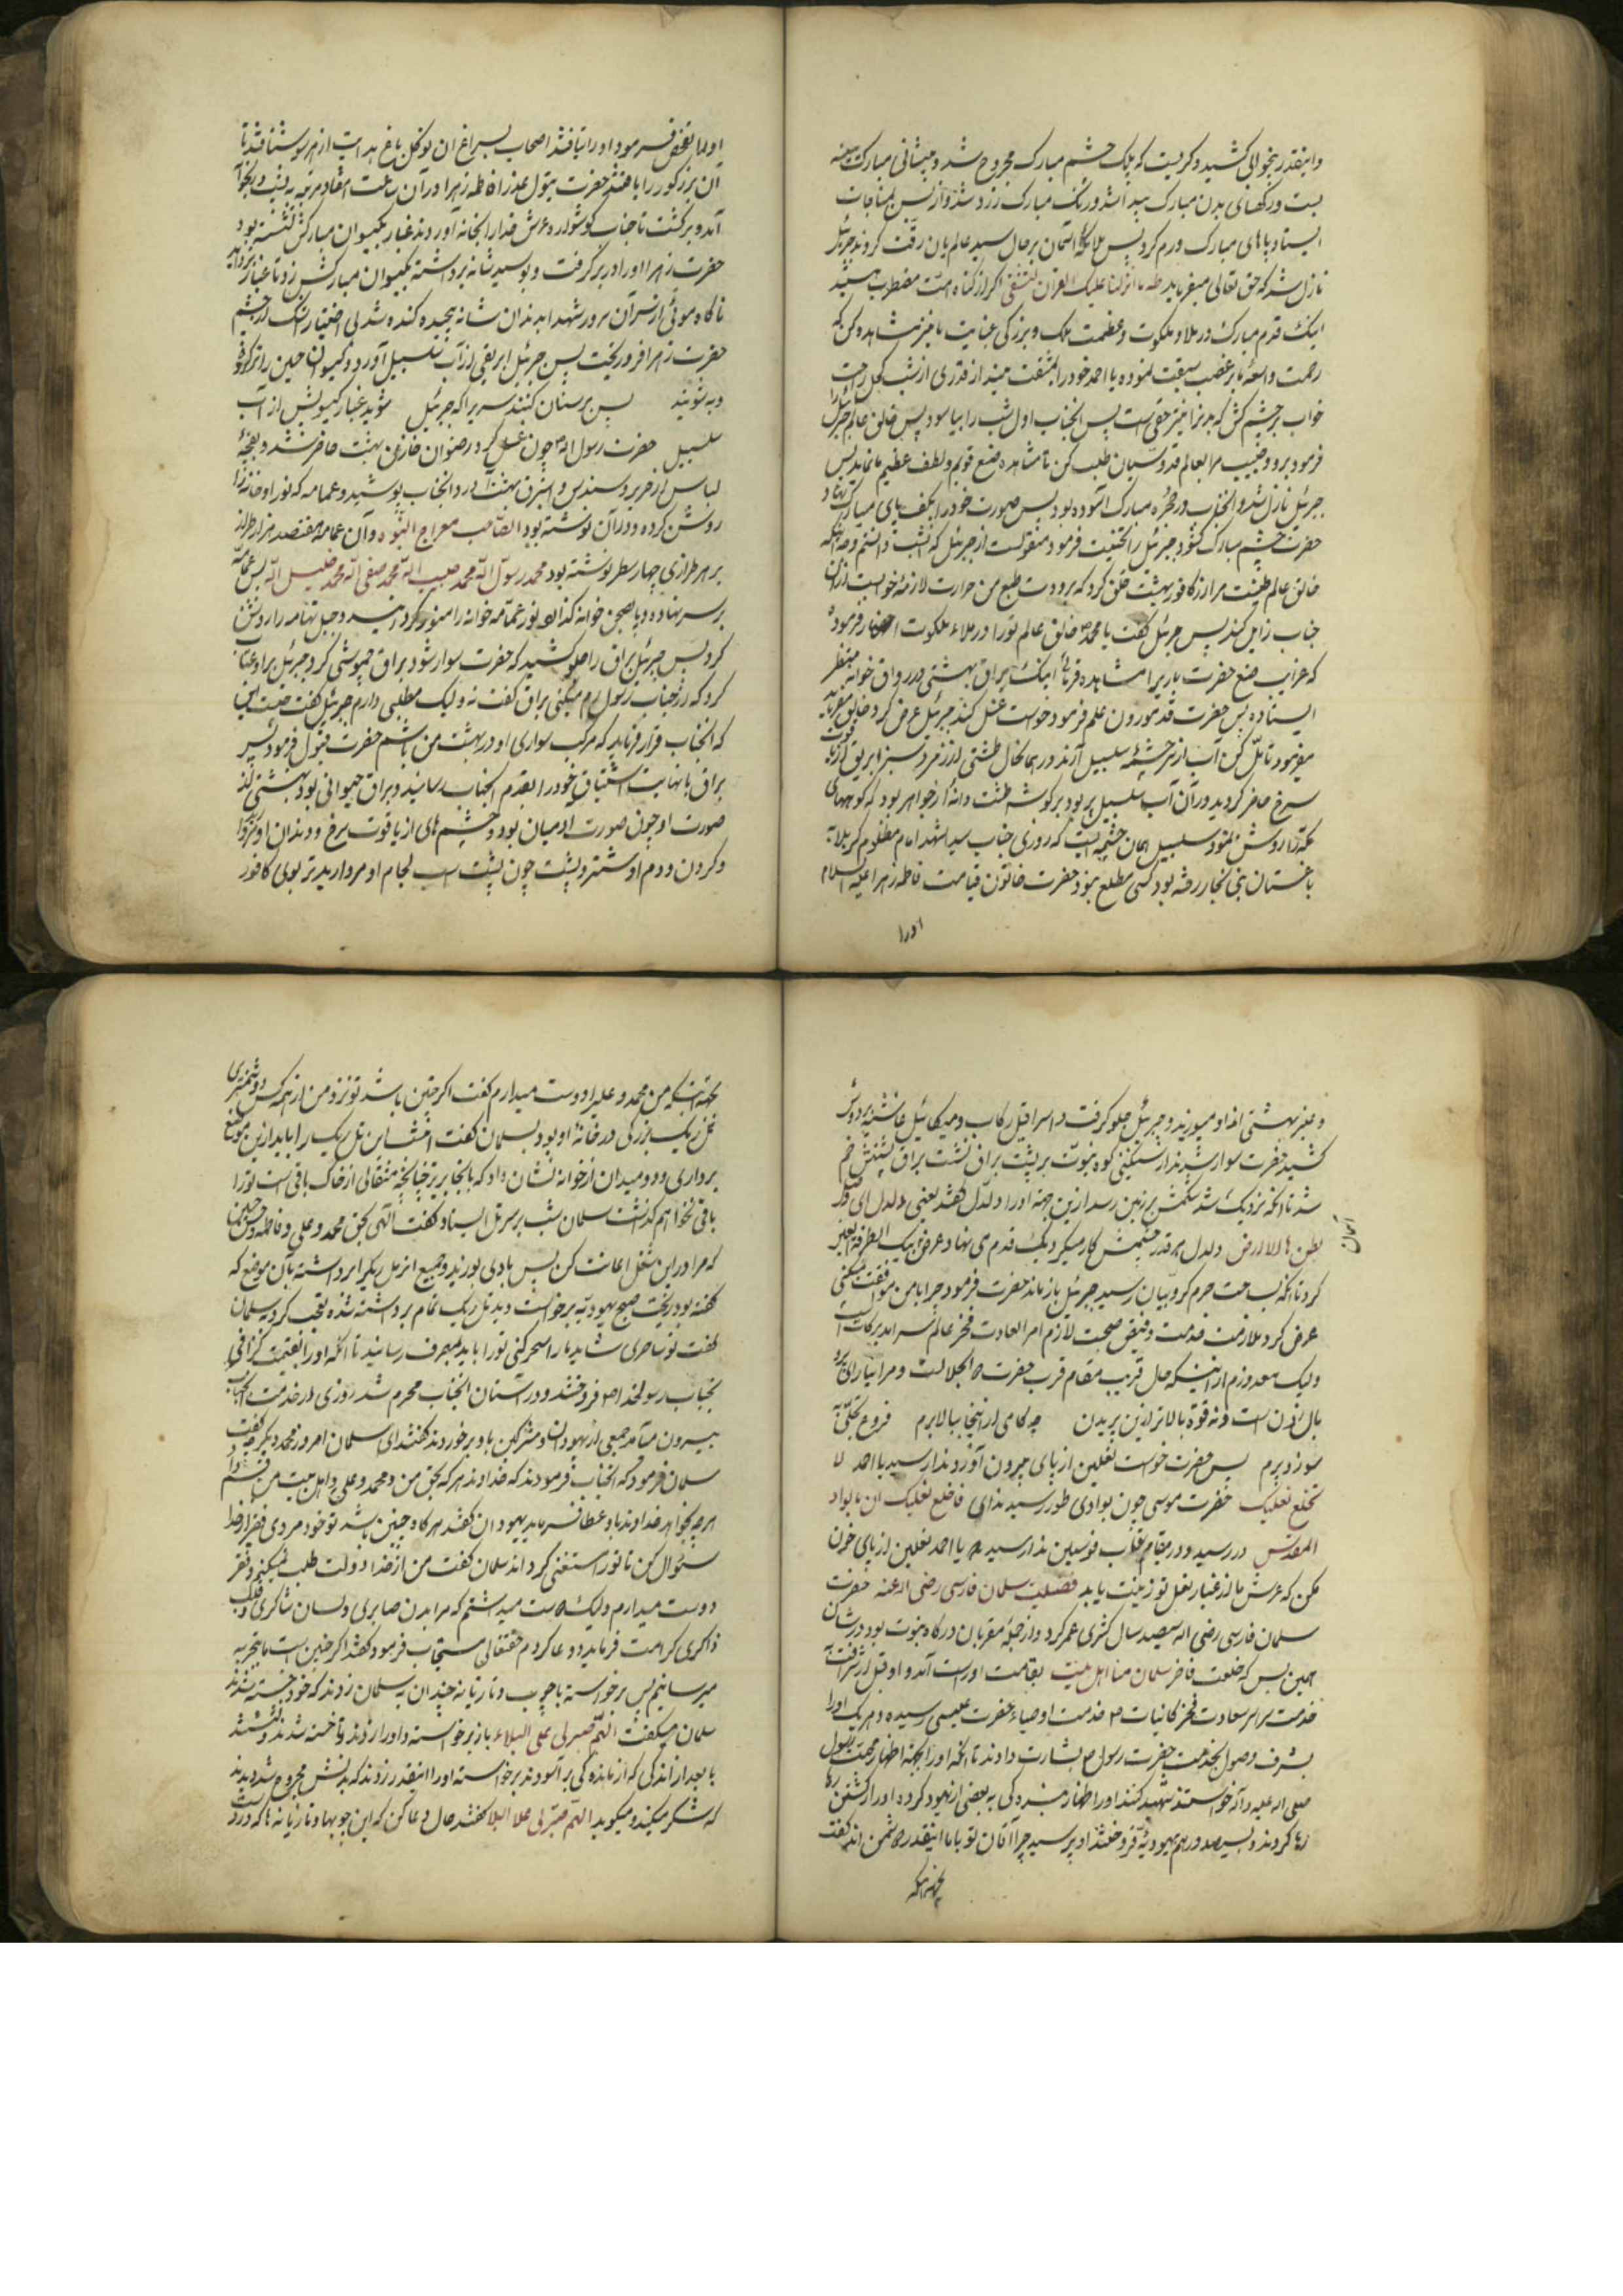 واینقدر بیخوابی کشید و کریست که پلک چشم مبارک مجروح شد و پیشانی مبارکت پینه
بست و رکهای بدن مبارک پیدا شد و رنک مبارک زرد شد و از بس بمناجات
ایستاد پاهای مبارک ورم کرد پس ملائکه آسمان بر حال سید عالمیان رقت کردند جبرئیل
نازل شد که حق تعالی میفرماید طه ما انزلنا علیک القران لتشقی اکر از کناه امت مضطرب میشد
اینک قدم مبارک در ملاء ملکوت و عظمت ملک و بزرکی عنایت ما نیز مشاهده کن که
رحمت واسعهٔ ما بر غضب سبقت نموده یا احمد خود را بمشقت مینداز قدری از شب کحل راحت
خواب بر چشم کش که بدنرا نیز حقی است پس آنجناب اول شب را بیاسود پس خالق عالم جبرئیل را
فرمود برو و حبیب مرا بعالم قدوسیان طلب کن تا مشاهده صنع قویم و لطف عظیم ما نماید پس
جبرئیل نازل شد و آنجناب در حجره مبارک آسوده بود پس صورت خود را بکف پای مبارک نهاد
حضرت چشم مبارک کشود جبرئیل را تحنیت فرمود منقولست از جبرئیل که آنشب دانستم وجه آنکه
خالق عالم طینت مرا از کافور بهشت خلق کرد که برودت طبع من حرارت لازمهٔ خواب از آن
جناب زایل کند پس جبرئیل کفت یا محمد خالق عالم تو را در ملاء ملکوت احضار فرموده
که غرایب صنع حضرت باریرا مشاهده فرمائی اینک براق بهشتی در رواق خوانه منتظر
ایستاده پس حضرت قد موزون علم فرمود خواست غسل کند جبرئیل عرض کرد خالق میفرماید
میفرمود تأمل کن آب از سرچشمهٔ سلسبیل آرند در همانحال طشتی از زمرد سبز ابریق از یاقوت
سرخ حاضر کردید در آن آب سلسبیل پر بود بر کوشه طشت دانه از جواهر بود که کوههای
مکه را روشن نمود سلسبیل همان چشمه ایست که روزی جناب سید الشهدا امام مظلوم کربلا به
باغستان بنی نجار رفته بود کسی مطلع نبود حضرت خاتون قیامت فاطمه زهرا علیه السلام
اورا
حضرت زهرا اورا در بر کرفت و بوسید شانه برداشته بکیسوان مبارکش زد تا غبار بزداید
ناکاه موئی از سر آن سرور شهدا بدندان شانه پیچیده کنده شد بی اختیار اشک از چشم
حضرت زهرا فرو ریخت پس جبرئیل ابریقی از آب سلسبیل آورد و کیسوان حسین را تر کردند
وبشویند پس پرستان کنند سریرا که جبرئیل شوید غبار کیسویش از آب
سلسبیل حضرت رسول اله چون غسل کرد رضوان خازن بهشت حاضر شد و بقچهٔ
لباس از حریر و سندس و استبرق بهشت آورد آنجناب پوشید و عمامه که نور او خانه را
روشن کرده و در آن نوشته بود الصاحب معراج النبوه و آن عمامه هفتصد هزار طراز
بر هر طرازی چهار سطر نوشته بود محمد رسول الله محمد حبیب الله محمد صفی الله محمد خلیل الله پس عمامه
بر سر نهاده و پا بصحن خوانه کذارد نور عمامه خوانه را منور کردانید و جبل تهامه را روشن
کرد پس جبرئیل براق را جلو کشید که حضرت سوار شود براق چموشی کرد جبرئیل براو عتاب
کرد که از جناب رسول رم میکنی براق کفت نه ولیک مطلبی دارم جبرئیل کفت چیست این
که آنجناب قرار فرماید که مرکب سواری او در بهشت من باشم حضرت قبول فرمود پس
براق با نهایت اشتیاق خود را بقدم آنجناب رسانید و براق حیوانی بود بهشتی
صورت او چون صورت آدمیان بود و چشمهای از یاقوت سرخ و دندان او
و کردن و دم او شتر و پشت چون پشت اسب لجام او مروارید تر بوی کافور
و عنبر بهشتی از او میوزید و جبرئیل جلو کرفت و اسرافیل رکاب و میکائیل غاشیه بر دوش
کشید حضرت سوار شد از سنکینی کوه نبوت بر پشت براق نشست براق پشتش خم
شد تا آنکه نزدیک شد شکمش بر زمین رسد از این جهة اورا دلدل کفتند یعنی دلدل الی
بطن ها للارض دلدل هر قدر چشمش کار میکرد یک قدم می نهاد
آسمان
کرد تا آنکه بساحت حرم کروبیان رسید جبرئیل باز ماند حضرت فرمود چرا با من موافقت نمیکنی
عرض کرد ملازمت خدمت و فیض صحبت لازم امر العادت فخر عالم سراسر برکات است
ولیک معذورم از اینکه حال قریب مقام قرب حضرت ذالجلالست و مرا نیارای پر و
بال زدن است و نه قوة بالاتر از این پریدن چه کامی از اینجا ببالا برم فروغ تجلی
سوزد پرم پس حضرت خواست نعلین از پای بیرون آورد ندا رسید یا احمد لا
تخلع نعلیک حضرت موسی چون بوادی طور رسید ندای فاخلع نعلیک ان بالواد
المقدس در رسید و در مقام قاب قوسین ندا رسید که یا احمد نعلین از پای خود
مکن که عرش ما از غبار نعل تو زینت یابد فضیلت سلمان فارسی رضی اله عنه حضرت
سلمان فارسی رضی اله سیصد سال کثری عمر کرد و از جملهٔ مقربان درکاه نبوت بود در شان
همین بس که خلعت فاخر سلمان منا اهل بیت بقامت او راست آمد و او قبل از شرافت به
خدمت سراسر سعادت فخر کاینات خدمت اوصیاء حضرت عیسی رسیده و هریک اورا
بشرف وصول بخدمت حضرت رسول بشارت دادند تا آنکه اورا بجهة اظهار محبت رسول
صلی اله علیه و آله خواستند شهید کنند و اورا به بعضی از یهود کرده اورا از کشتن رها
رها کردند و بسیصد درهم بیهودیهٔ فروختند او پرسید چرا آقایان تو با ما اینقدر دشمن اند کفت
بجهة اینکه
بجهة اینکه من محمد و علی را دوست میدارم کفت اکر چنین باشد تو نزد من از همه کس دشمنتری
تل ریک بزرکی در خانهٔ او بود بسلمان کفت امشب این تل ریک را باید از این موضع
برداری و دو میدان از خوانه نشان داد که بآنجا بریز چنانچه مثقالی از خاک باقی است تورا
باقی نخواهم کذاشت سلمان شب بر سر تل ایستاد کفت الهی بحق محمد و علی و فاطمه و حسن و حسین
که مرا در این شغل اعانت کن پس بادی بوزید و جمیع آن تل ریک را برداشته بآن موضع که
کفته بود ریخت صبح یهودیه برخواست دید تل ریک تمام برداشته شده تعجب کرد به سلمان
کفت تو ساحری شاید مارا سحر کنی تورا باید بمصرف رسانید تا آنکه اورا بقیمت کزافی
بجناب رسولخدا فروختند و در آستان آنجناب محرم شد روزی از خدمت آنجناب
بیرون میآمد جمعی از یهودان و مشرکین باو برخوردند کفتند ای سلمان امروز محمد دیکر چه کفت
سلمان فرمود که آنجناب فرمودند که خداوند هر که بحق من و محمد و علی و اهل بیت من قسم
هرچه بخواهد خداوند باو عطا فرماید یهودان کفتند هرکاه چنین باشد تو خود مردی فقیر از خدا
سئوال کن تا تورا مستغنی کرداند سلمان کفت من از خدا دولت طلب نمیکنم و فقر
دوست میدارم ولیک دوست میداشتم که مرا بدن صابری و لسان شاکری و قلب
ذاکری کرامت فرماید دعا کردم حقتعالی مستجاب فرمود کفتند اکر چنین است ما بتجربه
میرسانیم پس برخواسته با چوب و تازیانه چندان به سلمان زدند که خود خسته شدند
سلمان میکفت اللهم صبرنی علی البلاء باز برخواسته و اورا زدند تا خسته شدند و نشستند
تا بعد از اندکی که از ماندکی بر آسودند برخواسته اورا اینقدر زدند که بدنش مجروح شد و دیدند
که شکر میکند و میکوید اللهم صبرنی علا البلا کفتند حال دعا کن که این چوبها و تازیانه ها که در دست